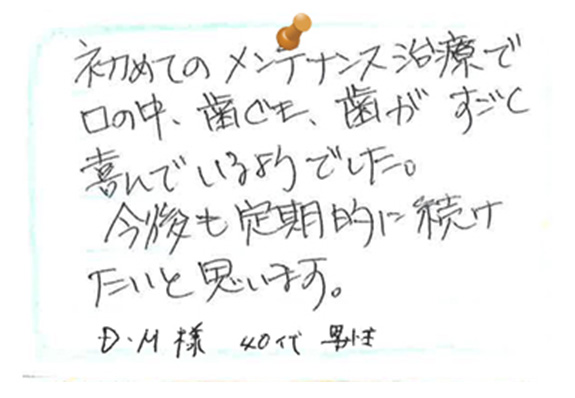 初めてのメンテナンス治療で
口の中、歯ぐき、歯がすごく
喜んでいるようでした。
今後も定期的に続け
たいと思います。
D・M様 40代 男性